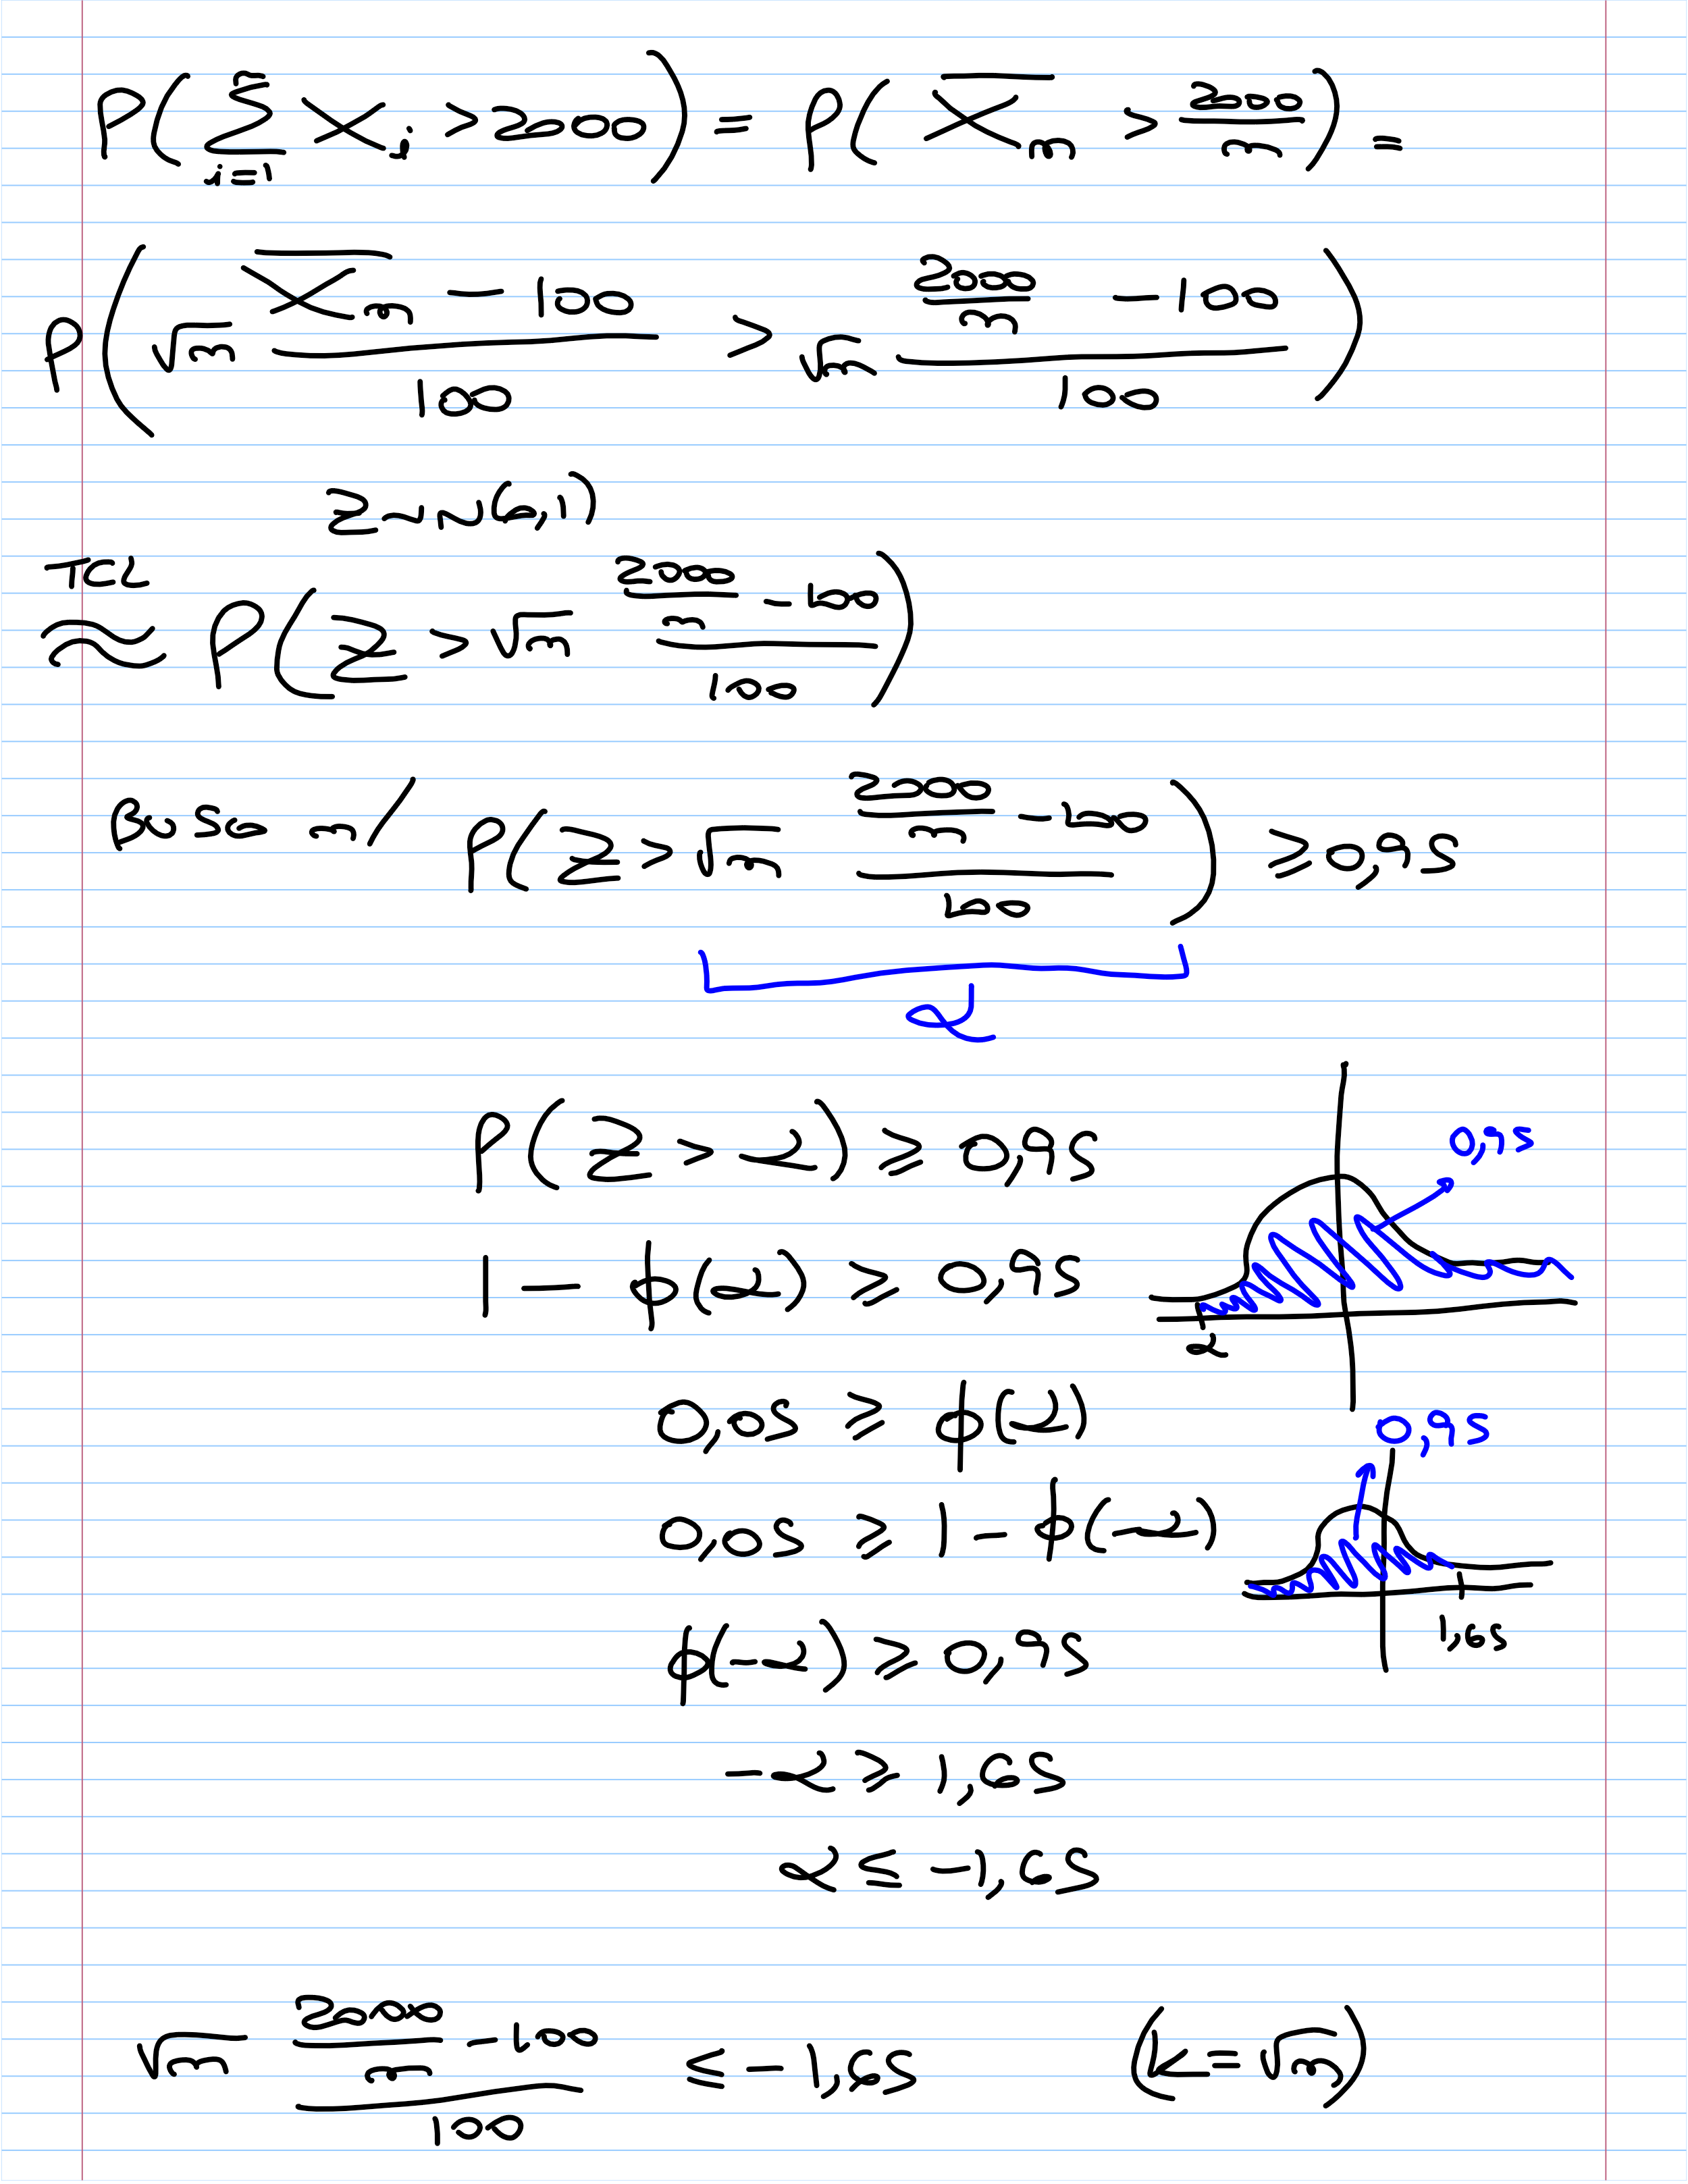 P(∑_{i=1}^{n} X_i > 2000) = P(X̄_n > 2000/n) =
P(√n (X̄_n - 100)/100 > √n (2000/n - 100)/100)
Z ~ N(0,1)
TCL
≈ P(Z > √n (2000/n - 100)/100)
Busco n/ P(Z > √n (2000/n - 100)/100) ≥ 0,95
α
P(Z > α) ≥ 0,95
0,95
1 - ϕ(α) ≥ 0,95
α
0,05 ≥ ϕ(α)
0,95
0,05 ≥ 1 - ϕ(-α)
1,65
ϕ(-α) ≥ 0,95
-α ≥ 1,65
α ≤ -1,65
√n (2000/n - 100)/100 ≤ -1,65 (k = √n)